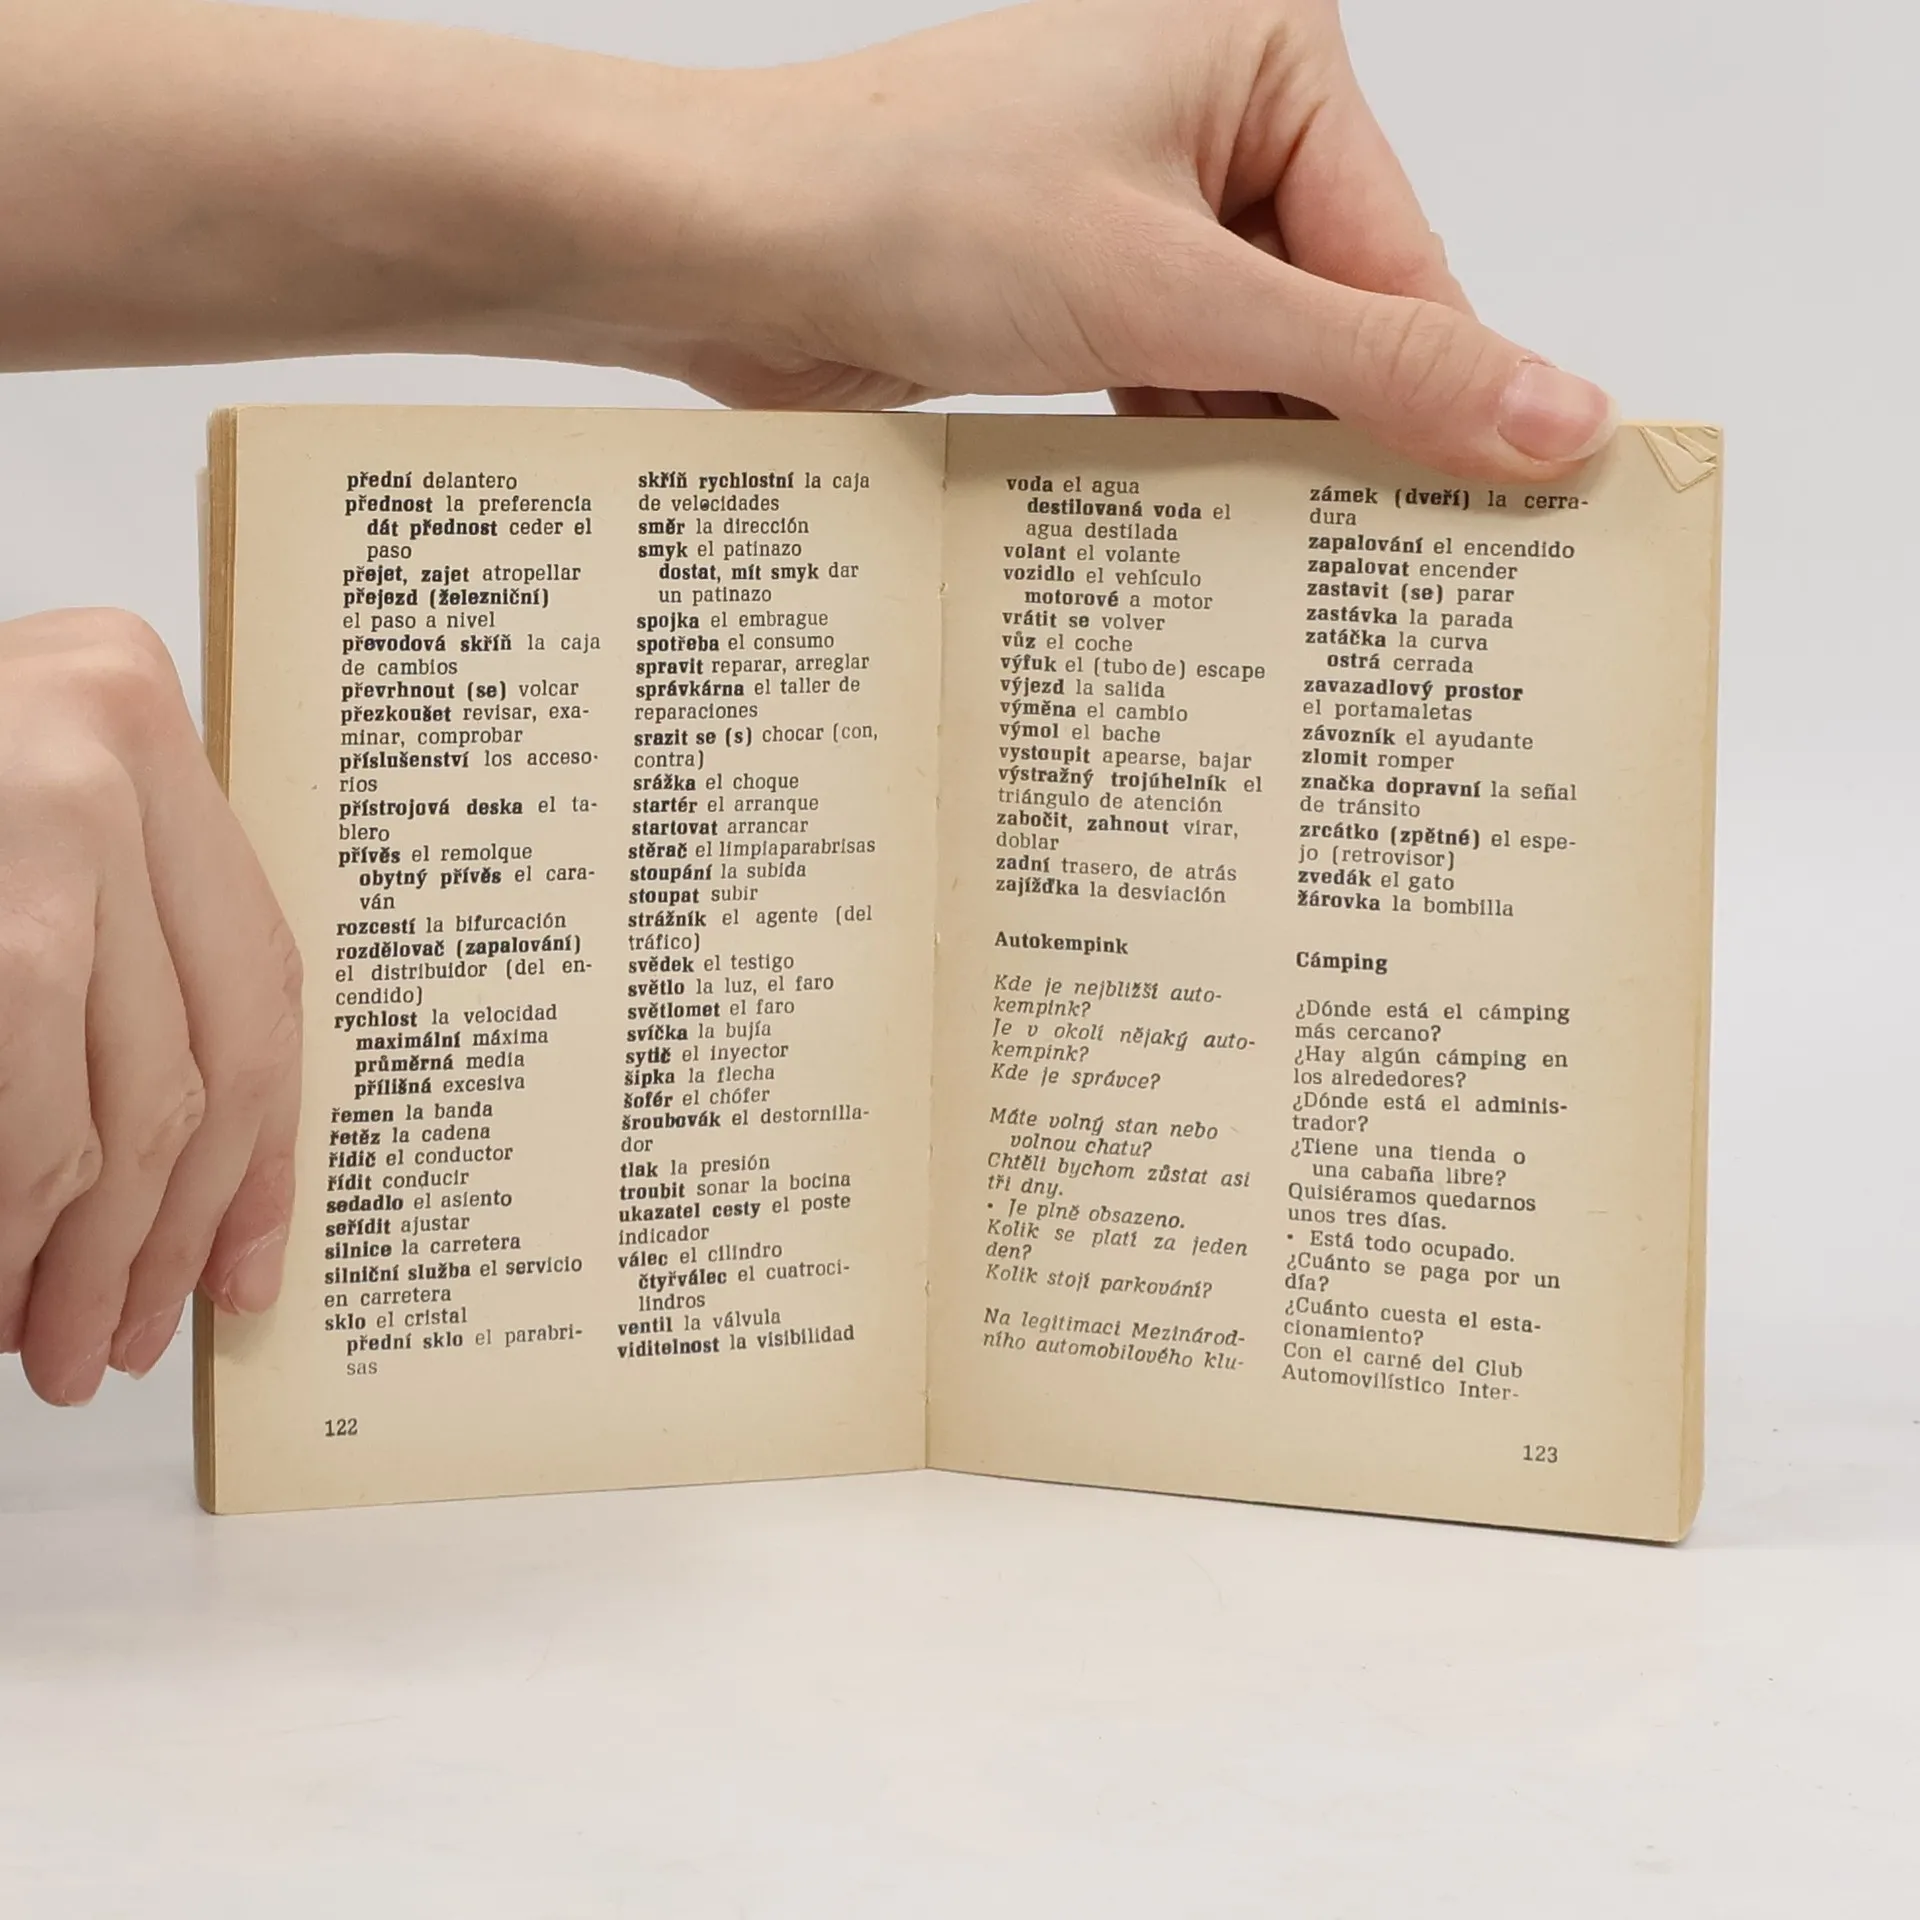 přední delantero
přednost la preferencia
dát přednost ceder el
paso
přejet, zajet atropellar
přejezd (železniční)
el paso a nivel
převodová skříň la caja
de cambios
převrhnout (se) volcar
přezkoušet revisar, exa-
minar, comprobar
příslušenství los acceso-
rios
přístrojová deska el ta-
blero
přívěs el remolque
obytný přívěs el cara-
ván
rozcestí la bifurcación
rozdělovač (zapalování)
el distribuidor (del en-
cendido)
rychlost la velocidad
maximální máxima
průměrná media
přílišná excesiva
řemen la banda
řetěz la cadena
řidič el conductor
řídit conducir
sedadlo el asiento
seřídit ajustar
silnice la carretera
silniční služba el servicio
en carretera
sklo el cristal
přední sklo el parabri-
sas
122
skříň rychlostní la caja
de velocidades
směr la dirección
smyk el patinazo
dostat, mít smyk dar
un patinazo
spojka el embrague
spotřeba el consumo
spravit reparar, arreglar
správkárna el taller de
reparaciones
srazit se (s) chocar (con,
contra)
srážka el choque
startér el arranque
startovat arrancar
stěrač el limpiaparabrisas
stoupání la subida
stoupat subir
strážník el agente (del
tráfico)
svědek el testigo
světlo la luz, el faro
světlomet el faro
svíčka la bujía
sytič el inyector
šipka la flecha
šofér el chófer
šroubovák el destornilla-
dor
tlak la presión
troubit sonar la bocina
ukazatel cesty el poste
indicador
válec el cilindro
čtyřválec el cuatroci-
lindros
ventil la válvula
viditelnost la visibilidad
voda el agua
destilovaná voda el
agua destilada
volant el volante
vozidlo el vehículo
motorové a motor
vrátit se volver
vůz el coche
výfuk el (tubo de) escape
výjezd la salida
výměna el cambio
výmol el bache
vystoupit apearse, bajar
výstražný trojúhelník el
triángulo de atención
zabočit, zahnout virar,
doblar
zadní trasero, de atrás
zajížďka la desviación
zámek (dveří) la cerra-
dura
zapalování el encendido
zapalovat encender
zastavit (se) parar
zastávka la parada
zatáčka la curva
ostrá cerrada
zavazadlový prostor
el portamaletas
závozník el ayudante
zlomit romper
značka dopravní la señal
de tránsito
zrcátko (zpětné) el espe-
jo (retrovisor)
zvedák el gato
žárovka la bombilla
Autokempink
Kde je nejbližší auto-
kempink?
Je v okolí nějaký auto-
kempink?
Kde je správce?
Máte volný stan nebo
volnou chatu?
Chtěli bychom zůstat asi
tři dny.
• Je plně obsazeno.
Kolik se platí za jeden
den?
Kolik stojí parkování?
Na legitimaci Mezinárod-
ního automobilového klu-
Cámping
¿Dónde está el cámping
más cercano?
¿Hay algún cámping en
los alrededores?
¿Dónde está el adminis-
trador?
¿Tiene una tienda o
una cabaña libre?
Quisiéramos quedarnos
unos tres días.
• Está todo ocupado.
¿Cuánto se paga por un
día?
¿Cuánto cuesta el esta-
cionamiento?
Con el carné del Club
Automovilístico Inter-
123